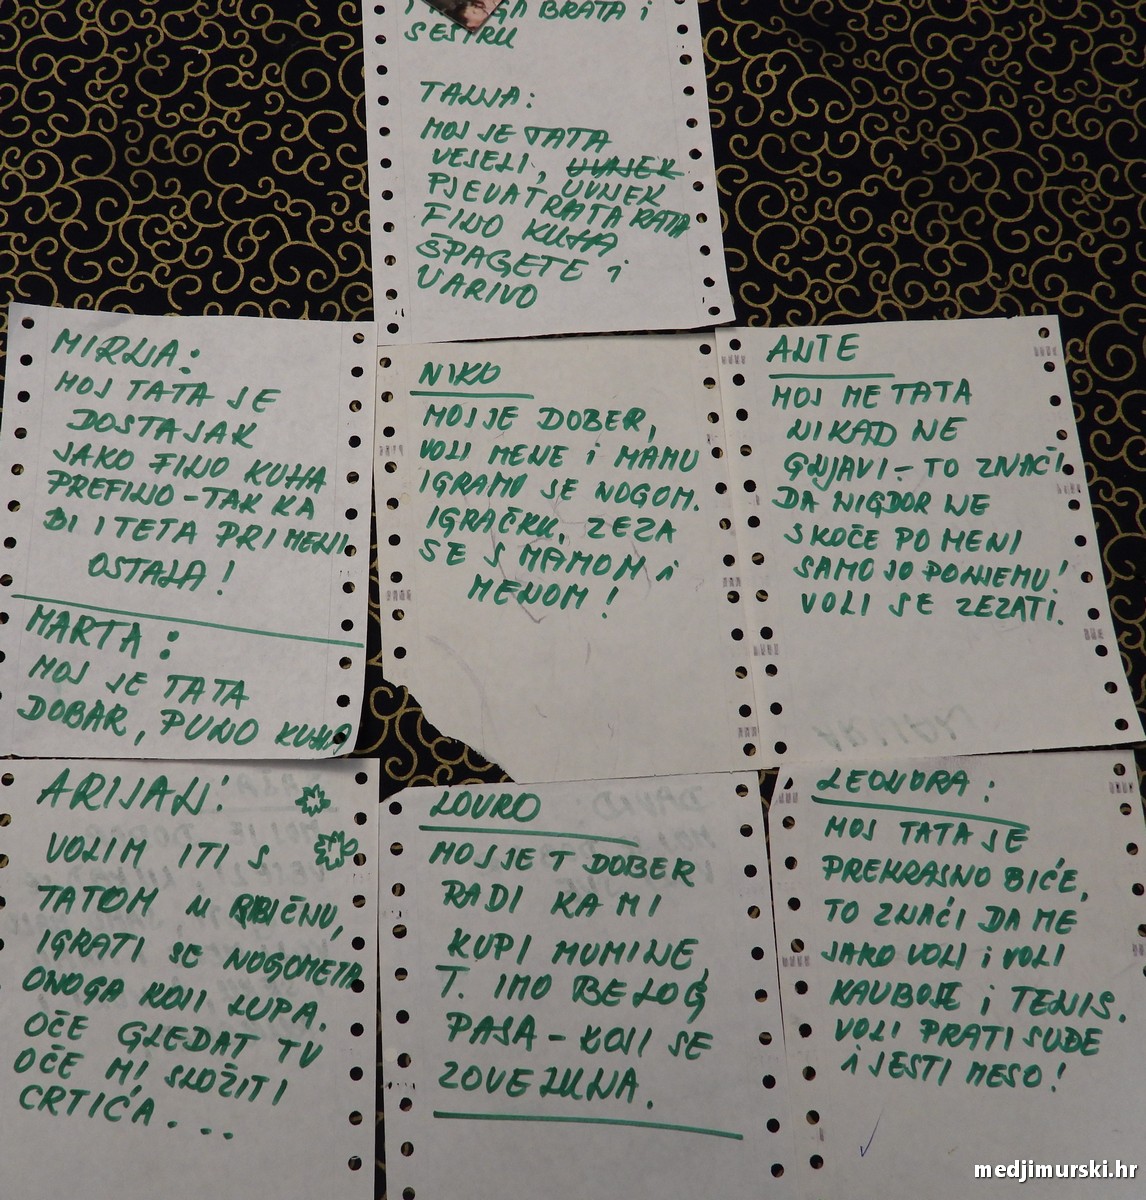 GA BRATA i
SESTRU
TANJA:
MOJ JE TATA
VESELI, UVIJEK
PJEVA TRATA RATA
FINO KUHA
ŠPAGETE i
VARIVO
MIRNA:
MOJ TATA JE
DOSTA JAK
JAKO FINO KUHA
PREFINO - TAK KA
BI I TETA PRI MENI
OSTALA!
MARTA:
MOJ JE TATA
DOBAR, PUNO KUHA
NIKO
MOJ JE DOBER,
VOLI MENE i MAMU
IGRAMO SE NOGOM.
IGRAČKU, ZEZA
SE S MAMOM i
MENOM!
ANTE
MOJ ME TATA
NIKAD NE
GNJAVI - TO ZNAČI
DA NIGDOR NE
SKOČE PO MENI
SAMO JO PO NJEMU!
VOLI SE ZEZATI.
ARIJAN:
VOLIM ITI S
TATOM U RIBIČNU,
IGRATI SE NOGOMETA
ONOGA KOJI LUPA.
OČE GLEDAT TV
OČE MI SLOŽITI
CRTIĆA...
LOVRO
MOJ JE T DOBER
RADI KA MI
KUPI MUMINE,
T. IMO BELOG
PASA - KOJI SE
ZOVE LUNA.
LEONORA:
MOJ TATA JE
PREKRASNO BIĆE,
TO ZNAĆI DA ME
JAKO VOLI i VOLI
KAUBOJE i TENIS.
VOLI PRATI SUĐE
I JESTI MESO!
medjimurski.hr